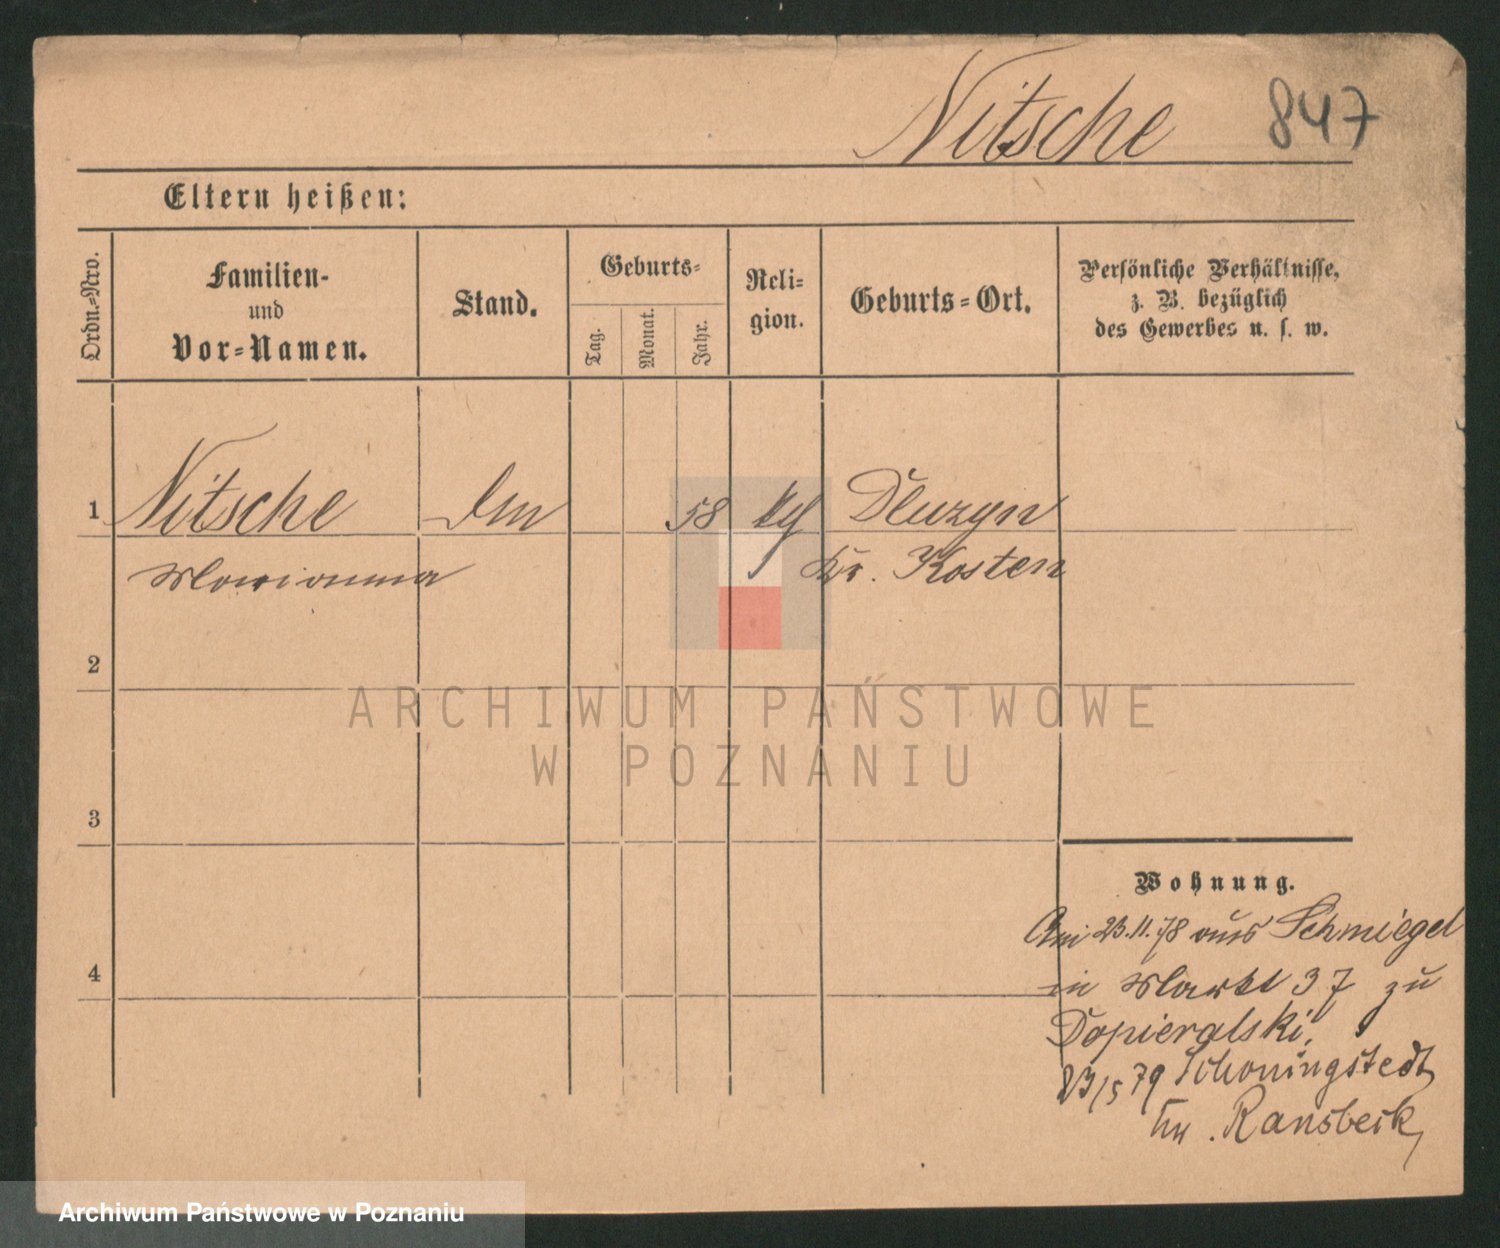 Nitsche 847
Eltern heißen:
Ordn.-Nro.
Familien-
und
Vor-Namen.
Stand.
Geburts-
Tag.
Monat.
Jahr.
Reli-
gion.
Geburts-Ort.
Persönliche Verhältnisse,
z. B. bezüglich
des Gewerbes u. s. w.
1 Nitsche 58 Dluzyn
Marianna Kr. Kosten
2
3
4
Wohnung.
23.11.78 aus Schmiegel
in Markt 37 zu
Dopieralski,
23/5 79
Ransbeck
ARCHIWUM PAŃSTWOWE
W POZNANIU
Archiwum Państwowe w Poznaniu